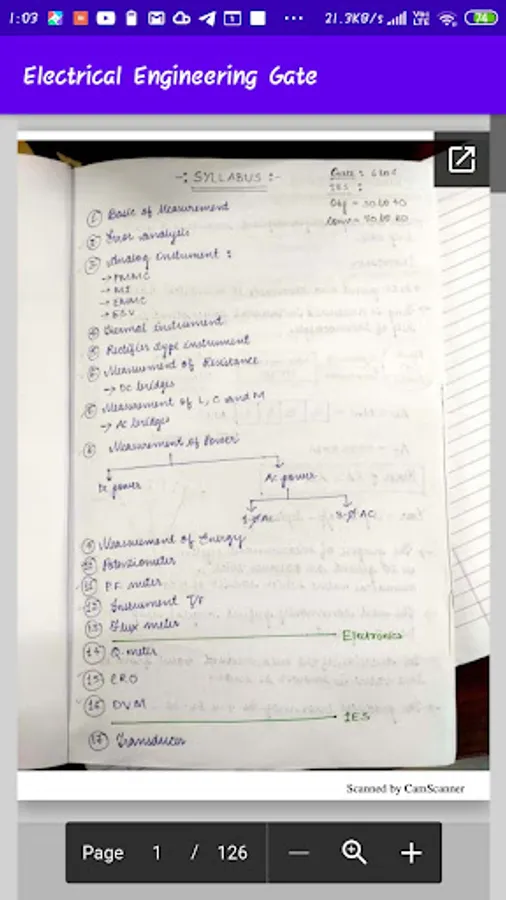 1:03
21.3KB/s
74
Electrical Engineering Gate
-: SYLLABUS :-
IES :
① Basic of Measurement
② Error analysis
③ Analog instrument :
→ PMMC
→ MI
→ EMMC
→ ESV
④ thermal instrument
⑤ Rectifier type instrument
Measurement of Resistance
→ DC bridges
Measurement of L, C and M
→ AC bridges
Measurement of Power
DC power
AC power
1-Ø AC
3-Ø AC
⑨ Measurement of Energy
Potentiometer
⑪ P.F. meter
⑫ Instrument T/F
⑬ Flux meter
Electronics
⑭ Q-meter
⑮ CRO
⑯ DVM
IES
⑰ Transducer
Scanned by CamScanner
Page 1 / 126